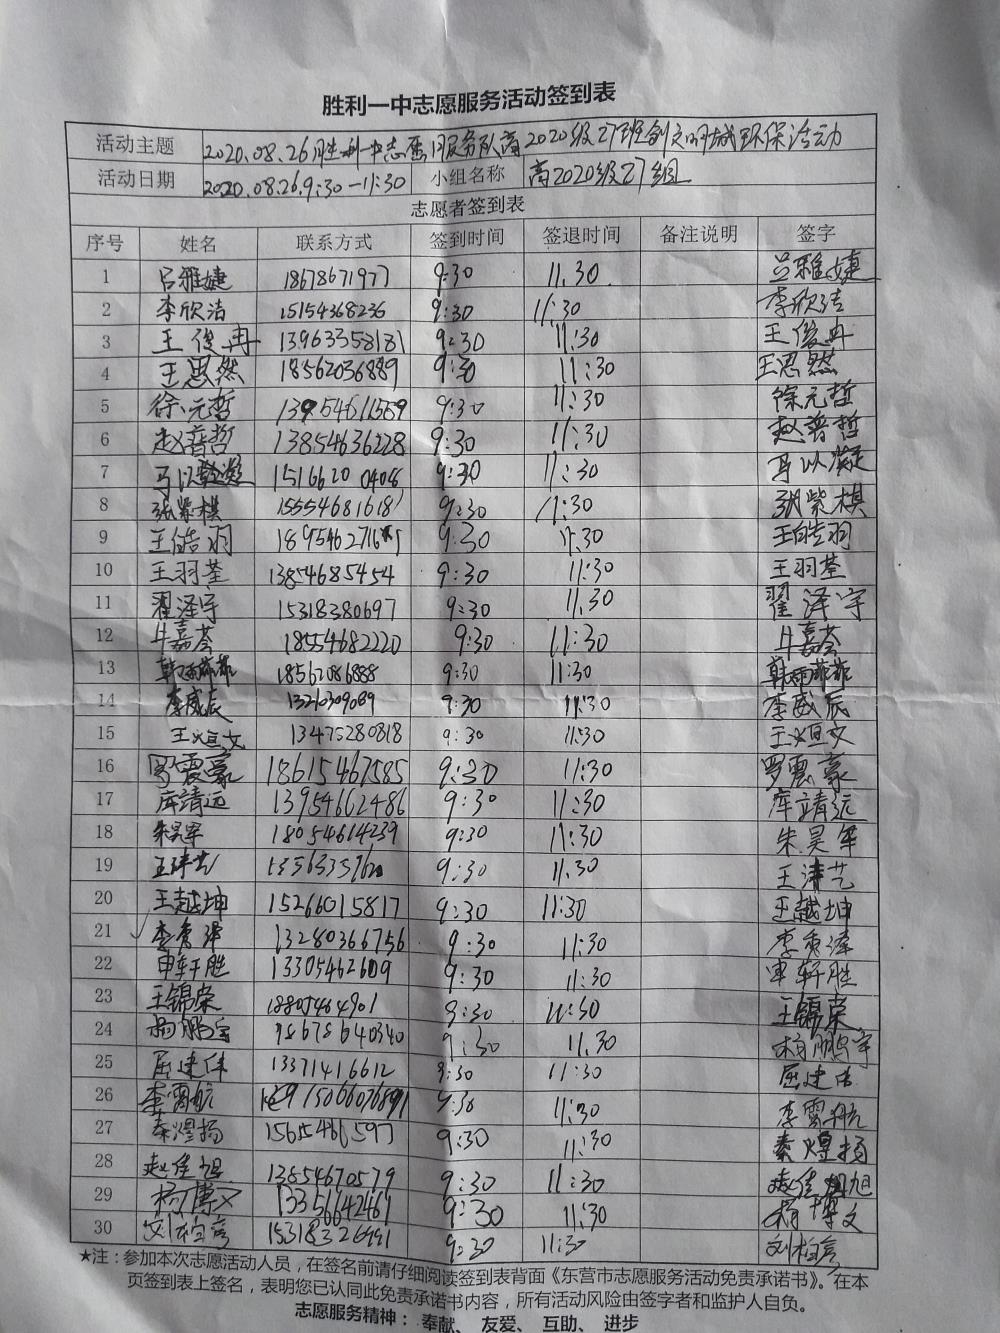 胜利一中志愿服务活动签到表
活动主题 2020.08.26胜利一中志愿服务队高2020级27班创文明城环保活动
活动日期 2020.08.26.9:30-11:30 小组名称 高2020级27组
志愿者签到表
序号 姓名 联系方式 签到时间 签退时间 备注说明 签字
1 吕雅婕 18678671977 9:30 11.30 吕雅婕
2 李欣洁 15154368236 9:30 11:30 李欣洁
3 王俊冉 13963358181 9:30 11:30 王俊冉
4 王思然 18562036889 9:30 11:30 王思然
5 徐元哲 13954611589 9:30 11:30 徐元哲
6 赵普哲 13854636228 9:30 11:30 赵普哲
7 马以凝 15166200406 9:30 11:30 马以凝
8 张紫棋 15554681618 9:30 11:30 张紫棋
9 王皓羽 9:30 11.30 王皓羽
10 王羽荃 13854685454 9:30 11:30 王羽荃
11 翟泽宇 15318380697 9:30 11.30 翟泽宇
12 牛嘉荟 18554682220 9:30 11:30 牛嘉荟
13 韩雨菲菲 18562086888 9:30 11:30 韩雨菲菲
14 李威辰 13210309089 9:30 11:30 李威辰
15 王烜文 13475280818 9:30 11:30 王烜文
16 罗震豪 18615467585 9:30 11:30 罗震豪
17 库靖远 13954662486 9:30 11:30 库靖远
18 朱昊军 18054614239 9:30 11:30 朱昊军
19 9:30 11.30 王清艺
20 王越坤 15266015817 9:30 11:30 王越坤
21 13280366756 9:30 11:30
22 申轩胜 13305462609 9:30 11:30 申轩胜
23 王锦荣 18805464901 9:30 11:30 王锦荣
24 杨鹏宇 18678640340 9:30 11.30 杨鹏宇
25 屈建伟 13371416612 9:30 11:30 屈建伟
26 李雪航 15066076891 9:30 11:30 李雪航
27 秦煜扬 15615466597 9:30 11:30 秦煜扬
28 赵佳旭 13854670579 9:30 11:30 赵佳旭
29 杨博文 13356642461 9:30 11:30 杨博文
30 刘柏彦 15318326991 9:30 11:30 刘柏彦
★注：参加本次志愿活动人员，在签名前请仔细阅读签到表背面《东营市志愿服务活动免责承诺书》。在本
页签到表上签名，表明您已认同此免责承诺书内容，所有活动风险由签字者和监护人自负。
志愿服务精神： 奉献、 友爱、 互助、 进步